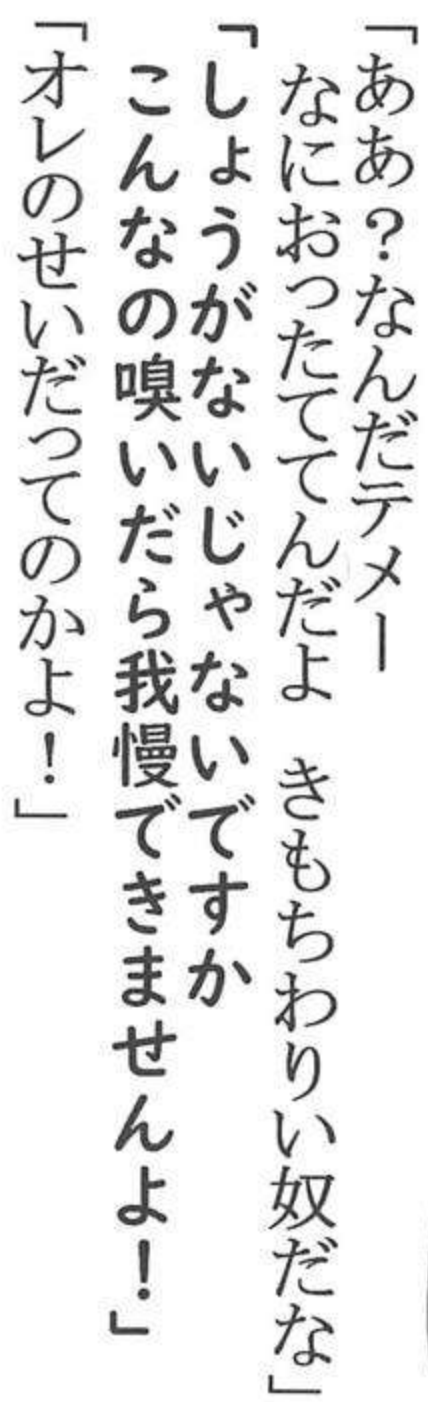 「ああ？なんだテメー
なにおったててんだよ　きもちわりい奴だな」
「しょうがないじゃないですか
こんなの嗅いだら我慢できませんよ！」
「オレのせいだってのかよ！」